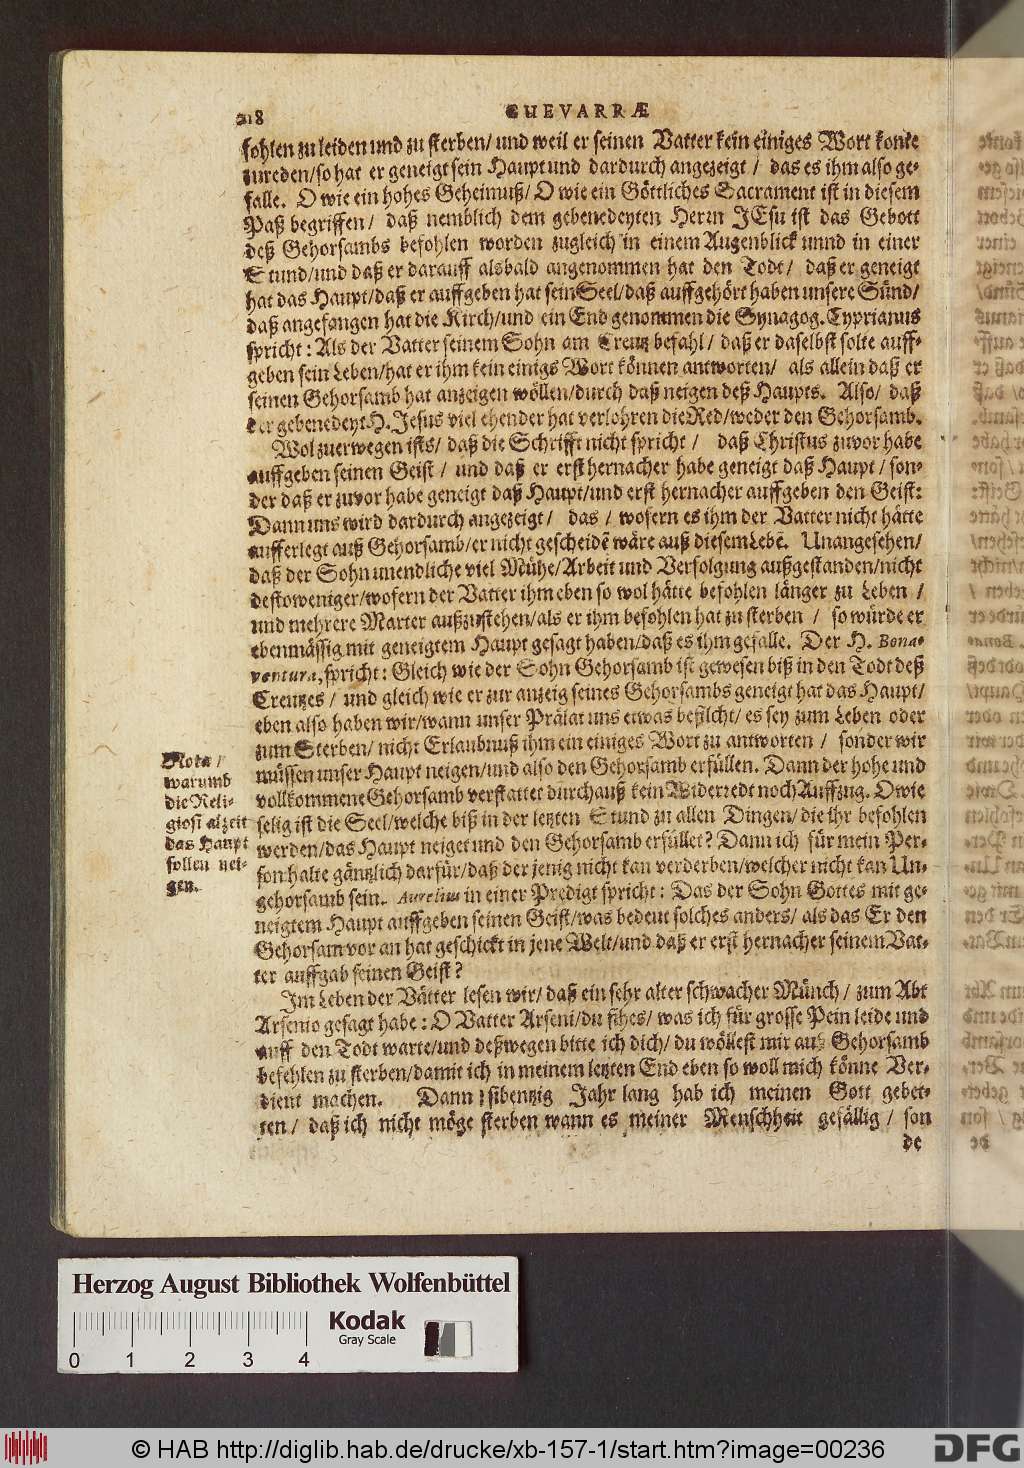 218 GUEVARRÆ
fohlen zu leiden und zu sterben/ und weil er seinen Vatter kein einiges Wort konte
zureden/so hat er geneigt sein Haupt und dardurch angezeigt / das es ihm also ge-
falle. O wie ein hohes Geheimuß/ O wie ein Göttliches Sacrament ist in diesem
Paß begriffen/ daß nemblich dem gebenedeyten Herrn JEsu ist das Gebott
deß Gehorsambs befohlen worden zugleich in einem Augenblick unnd in einer
Stund/und daß er darauff alsbald angenommen hat den Todt/ daß er geneigt
hat das Haupt/daß er auffgeben hat sein Seel/daß auffgehört haben unsere Sünd/
daß angefangen hat die Kirch/und ein End genommen die Synagog. Cyprianus
spricht: Als der Vatter seinem Sohn am Creutz befahl/ daß er daselbst solte auff-
geben sein Leben/hat er ihm kein einigs Wort können antworten/ als allein daß er
seinen Gehorsamb hat anzeigen wöllen/durch daß neigen deß Haupts. Also/ daß
der gebenedeyt H. Jesus viel ehender hat verlohren die Red/weder den Gehorsamb.
Wol zuerwegen ists/ daß die Schrifft nicht spricht / daß Christus zuvor habe
auffgeben seinen Geist / und daß er erst hernacher habe geneigt daß Haupt/ son-
der daß er zuvor habe geneigt daß Haupt/und erst hernacher auffgeben den Geist:
Dann uns wird dardurch angezeigt/ das / wofern es ihm der Vatter nicht hätte
aufferlegt auß Gehorsamb/er nicht gescheidē wäre auß diesem Lebē. Unangesehen/
daß der Sohn unendliche viel Mühe/Arbeit und Verfolgung außgestanden/nicht
destoweniger/wofern der Vatter ihm eben so wol hätte befohlen länger zu Leben /
und mehrere Marter außzustehen/als er ihm befohlen hat zu sterben / so würde er
ebenmässig mit geneigtem Haupt gesagt haben/daß es ihm gefalle. Der H. Bona-
ventura, spricht: Gleich wie der Sohn Gehorsamb ist gewesen biß in den Todt deß
Creutzes / und gleich wie er zur anzeig seines Gehorsambs geneigt hat das Haupt/
eben also haben wir/wann unser Prälat uns etwas befilcht/ es sey zum Leben oder
zum Sterben/ nicht Erlaubnuß ihm ein einiges Wort zu antworten / sonder wir
müssen unser Haupt neigen/und also den Gehorsamb erfüllen. Dann der hohe und
vollkommene Gehorsamb verstattet durchauß kein Widerredt noch Auffzug. O wie
selig ist die Seel/welche biß in der letzten Stund zu allen Dingen/ die ihr befohlen
werden/das Haupt neiget und den Gehorsamb erfüllet? Dann ich für mein Per-
son halte gäntzlich darfür/daß der jenig nicht kan verderben/welcher nicht kan Un-
gehorsamb sein. Aurelius in einer Predigt spricht: Das der Sohn Gottes mit ge-
neigtem Haupt auffgeben seinen Geist/was bedeut solches anders/ als das Er den
Gehorsam vor an hat geschickt in jene Welt/und daß er erst hernacher seinem Vat-
ter auffgab seinen Geist?
Im Leben der Vätter lesen wir/ daß ein sehr alter schwacher Münch / zum Abt
Arsenio gesagt habe: O Vatter Arseni/du sihes/ was ich für grosse Pein leide und
auff den Todt warte/und deßwegen bitte ich dich/ du wöllest mir auß Gehorsamb
befehlen zu sterben/damit ich in meinem letzten End eben so woll mich könne Ver-
dient machen. Dann sibentzig Jahr lang hab ich meinen Gott gebet-
ten/ daß ich nicht möge sterben wann es meiner Menschheit gefällig / son
de
Nota/
warumb
die Reli-
giosi alzeit
das Haupt
sollen nei-
gen.
Herzog August Bibliothek Wolfenbüttel
Kodak
Gray Scale
0 1 2 3 4
© HAB http://diglib.hab.de/drucke/xb-157-1/start.htm?image=00236
DFG